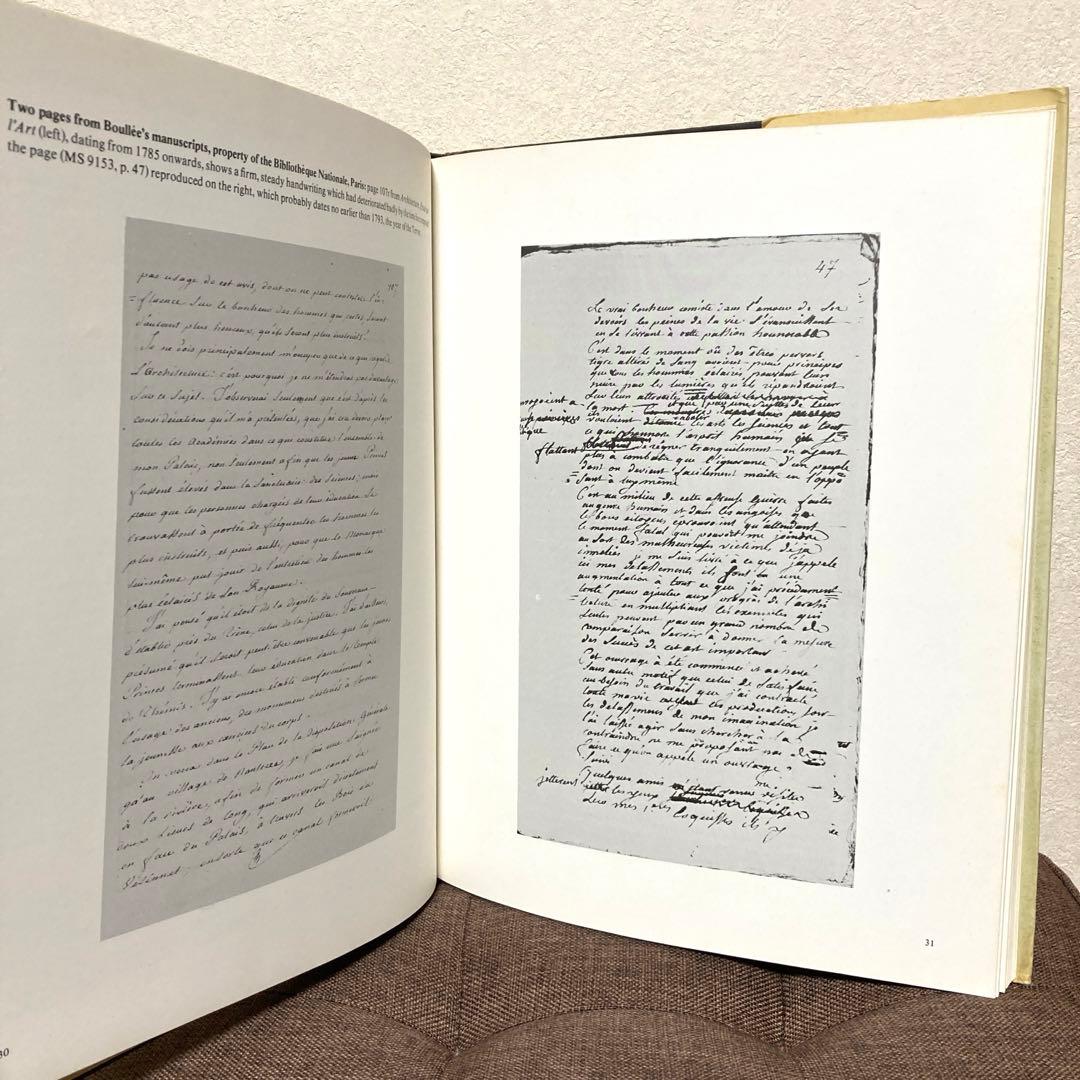 Two pages from Boullée's manuscripts, property of the Bibliothèque Nationale, Paris: page 107r from Architecture,
l'Art (left), dating from 1785 onwards, shows a firm, steady handwriting which had deteriorated badly by the time
the page (MS 9153, p. 47) reproduced on the right, which probably dates no earlier than 1793, the year of the Terror.
pas usage de cet avis, dont on ne peut contester l'in-
=fluence sur le bonheur des hommes que
d'autant plus heureux, qu'ils seront plus instruits?
Je ne dois principalement m'occuper que de ce que
l'Architecture: c'est pourquoi je ne m'étendrai pas
sur ce sujet. J'observai seulement que c'est d'après les
considérations qu'il m'a présentées, que j'ai cru devoir placer
toutes les Académies dans ce que constitue l'ensemble de
mon Palais, non seulement afin que les jeunes Princes
fussent élevés dans le Sanctuaire des Sciences; mais
pour que les personnes chargées de leur éducation se
trouvassent à portée de fréquenter les hommes les
plus instruits, et puis aussi, pour que le Monarque
lui-même put jouir de l'entretien des hommes les
plus éclairés de son Royaume.
J'ai pensé qu'il étoit de la dignité du Souverain
d'établir près du Trône, celui de la justice. J'ai d'ailleurs
présumé qu'il seroit peut-être convenable que les jeunes
Princes terminassent leur éducation dans le temple
de Thémis. J'y ai encore établi conformément à
l'usage des anciens, des monumens destinés à former
la jeunesse aux exercices du corps.
On verra dans le Plan de la disposition Générale
qu'au village de Nanterre, je fais une Saignée
à la rivière, afin de former un canal de
deux lieues de long, qui arriveroit directement
en face du Palais, à travers les Bois du
Vésinnet, ensorte que ce canal formeroit
30
47
Le vrai bonheur consiste dans l'amour de ses
devoirs les peines de la vie s'évanouissent
en se livrant à cette passion hounorable
C'est dans le moment où des êtres pervers,
tigre altéré de sang avoient pour principes
que tous les hommes éclairés pouvant leur
nuire par les lumières qu'ils répandroient
sur leur atrocité
la mort
vouloient les arts les sciences et tout
ce qui honnore l'esprit humain
flattant de régner tranquilement en n'ayant
plus à combatre que l'ignorance d'un peuple
dont on devient facilement maitre en l'oppo
sant à luy même
C'est au milieu de cette affreuse guerre faites
au genre humain et dans les angoisses que
les bons citoyens eprouvoient qu'attendant
le moment fatal qui pouvoit me joindre
au sort des malheureuses victimes déja
imolées je me suis livré à ce que j'appele
ici mes délassements ils font en une
augmentation à tout ce que j'ai précédament
tenté pour ajouter aux progrès de l'archi
tecture en multipliant les exemples qui
seules peuvent par un grand nombre de
comparaison servir à donner la mesure
des succès de cet art important
Cet ouvrage à été commencé et achevé
sans autre motif que celui de satisfaire
au besoin du travail que j'ai contracté
toute ma vie ces productions sont
les délassements de mon imagination je
l'ai laissé agir sans chercher à la
contraindre ne me proposant pas de
faire ce qu'on appele un ouvrage
suivi
Quelques amis
jetterent les yeux
sur mes esquisses
31